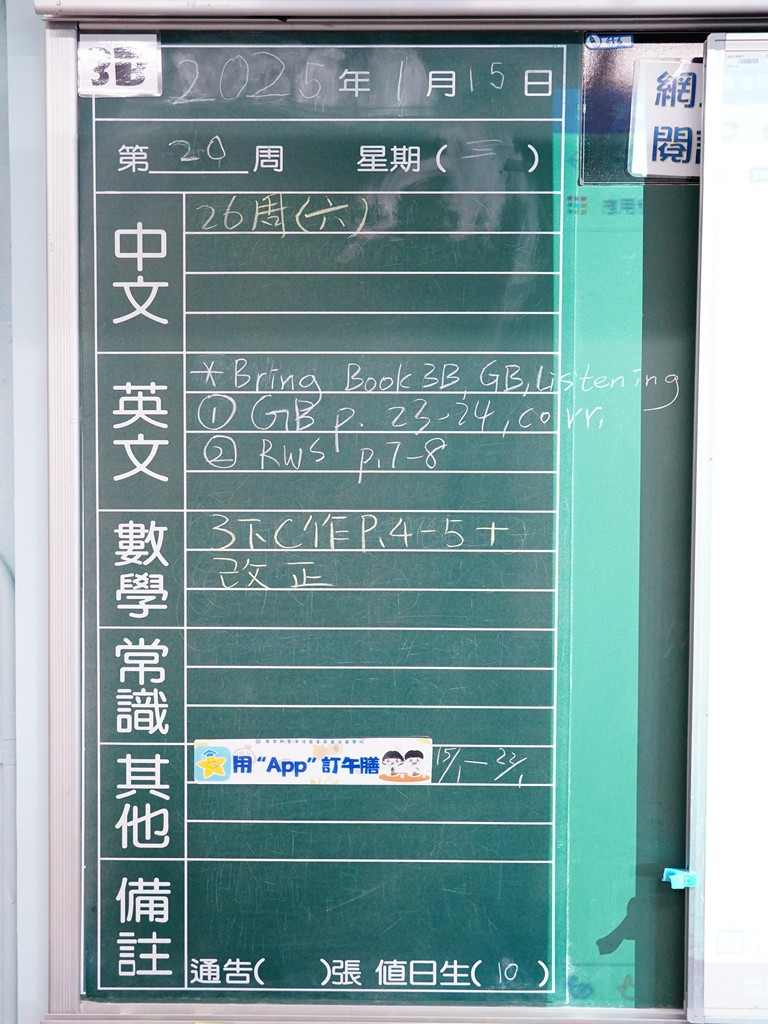 3B
2025年1月15日
第20周 星期(三)
網
閱
應用
中文
26周(六)
英文
* Bring Book 3B, GB, Listening
① GB p. 23-24, corr.
② RWS p.7-8
數學
3下C作P.4-5+
改正
常識
其他
用“App”訂午膳 15/1-22/1
備註
通告( )張 值日生(10)